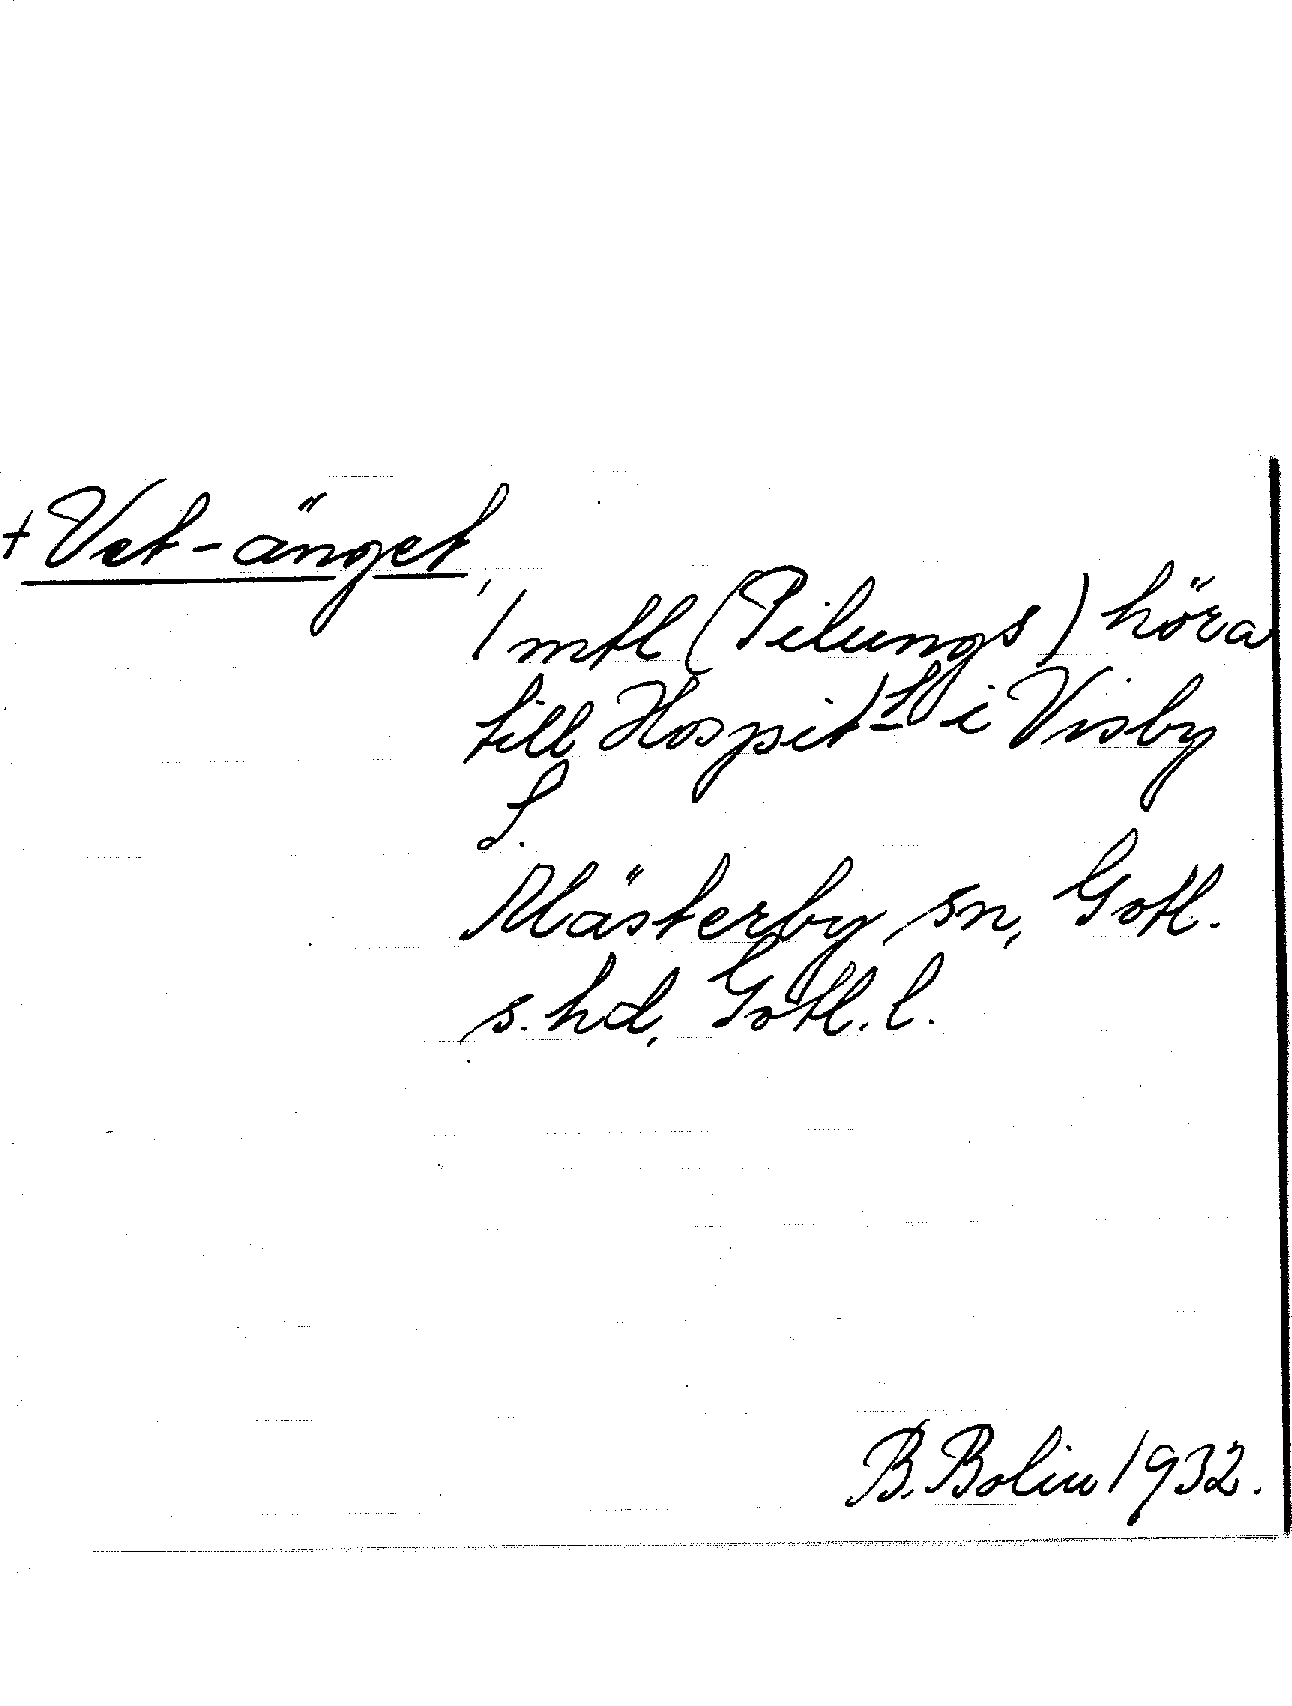 + Vet-änget,
1 mtl (Pilungs) höra
till Hospit-l i Visby
S.
Mästerby sn, Gotl.
s. hd, Gotl. l.
B. Bolin 1932.